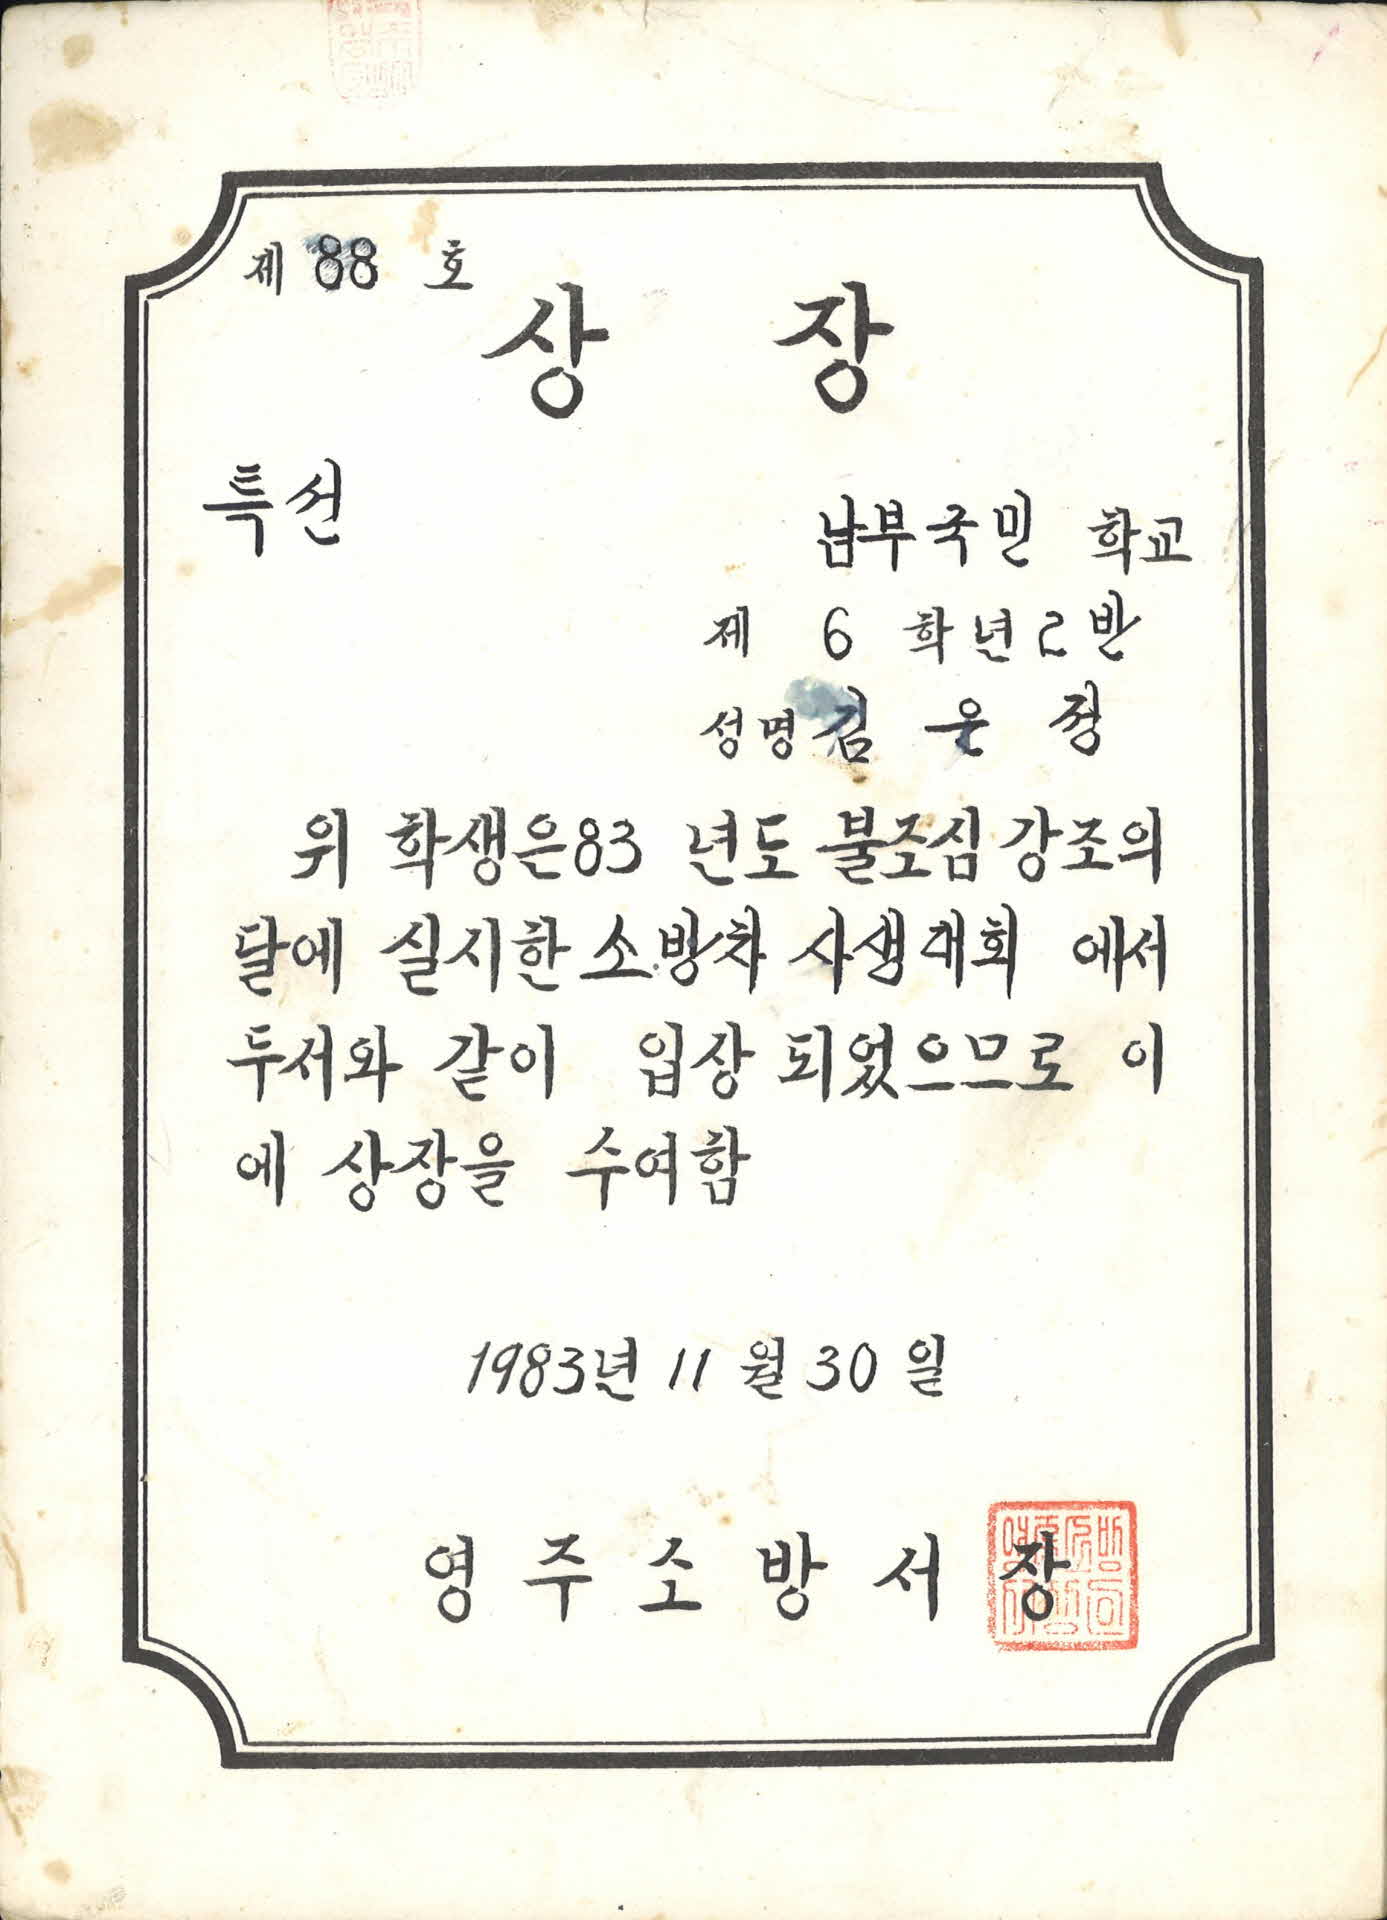 제 88 호
상 장
특선
남부국민 학교
제 6 학년 2반
성명 김 은 정
위 학생은 83 년도 불조심 강조의
달에 실시한 소방차 사생대회 에서
두서와 같이 입상 되었으므로 이
에 상장을 수여함
1983년 11 월 30 일
영 주 소 방 서 장